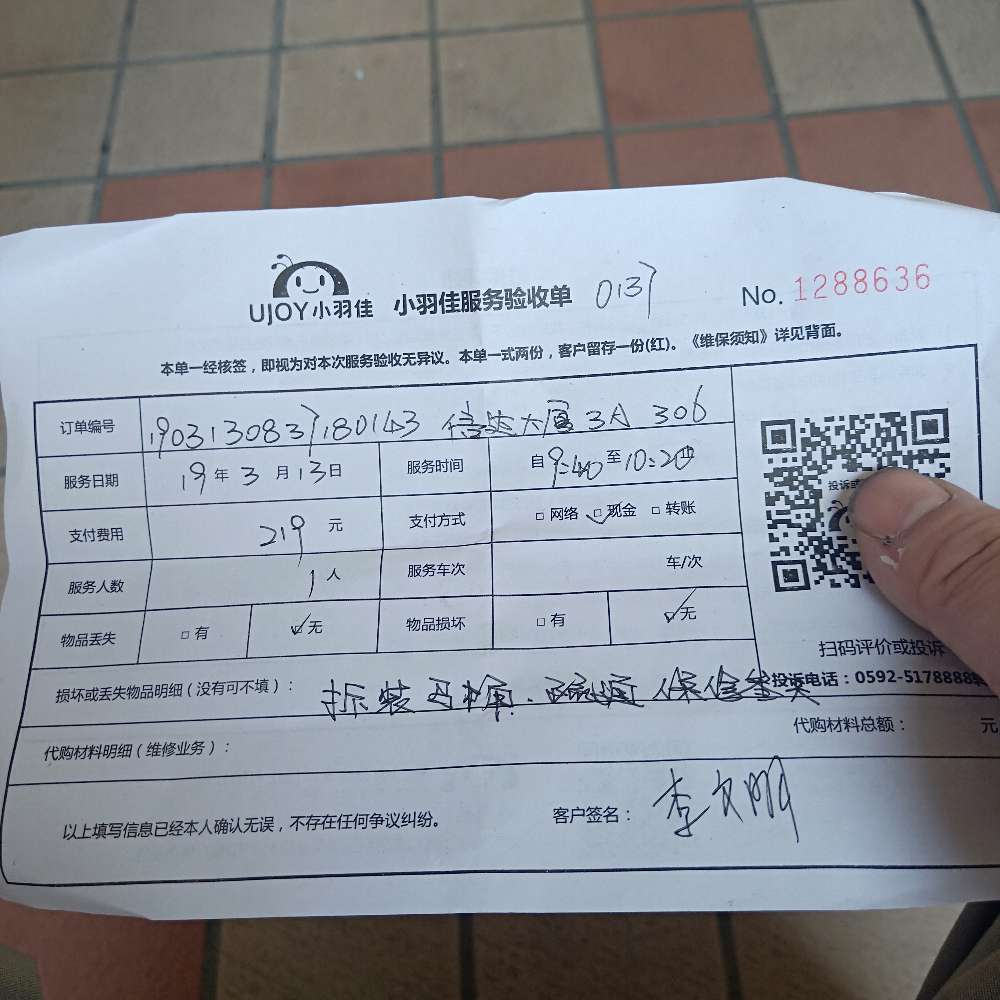 UJOY小羽佳 小羽佳服务验收单 0137 No. 1288636
本单一经核签，即视为对本次服务验收无异议。本单一式两份，客户留存一份(红)。《维保须知》详见背面。
订单编号 1903130837180143 信达大厦3A 306
服务日期 19年3月13日 服务时间 自9:40至10:20止
投诉或
支付费用 219元 支付方式 □网络 ☑现金 □转账
服务人数 1人 服务车次 车/次
物品丢失 □有 ☑无 物品损坏 □有 ☑无
扫码评价或投诉
损坏或丢失物品明细（没有可不填）： 拆装马桶.疏通 保修叁天
投诉电话：0592-5178888
代购材料明细（维修业务）： 代购材料总额： 元
以上填写信息已经本人确认无误，不存在任何争议纠纷。 客户签名： 李文明